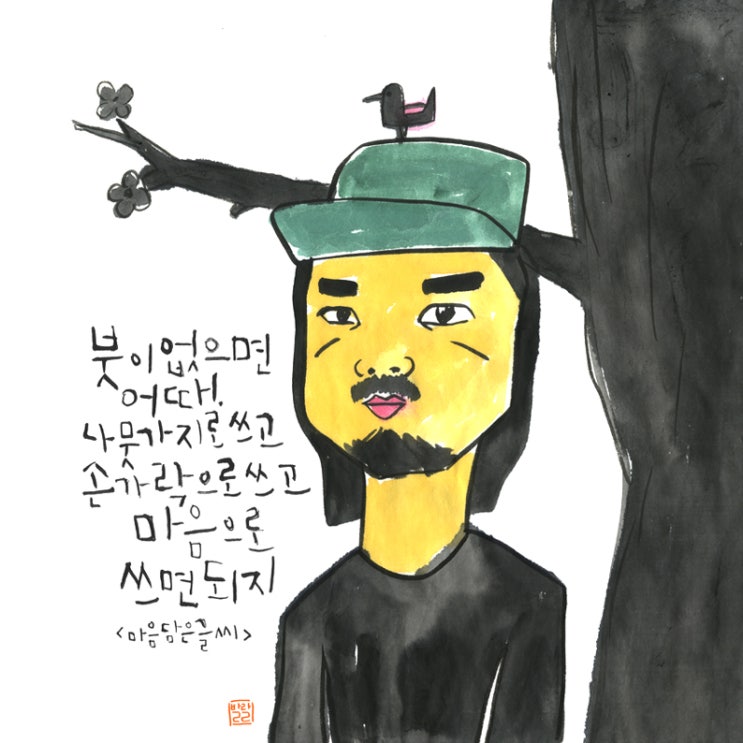 붓이 없으면
어때!
나뭇가지로 쓰고
손가락으로 쓰고
마음으로
쓰면 되지
<마음담은글씨>